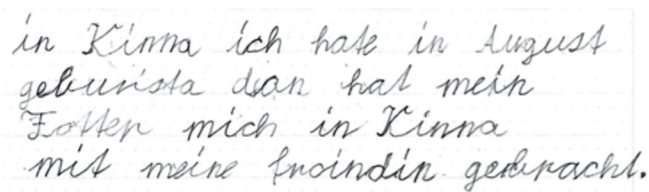 in Kinna ich hate in August
geburista dan hat mein
Fotter mich in Kinna
mit meine froindin gebracht.